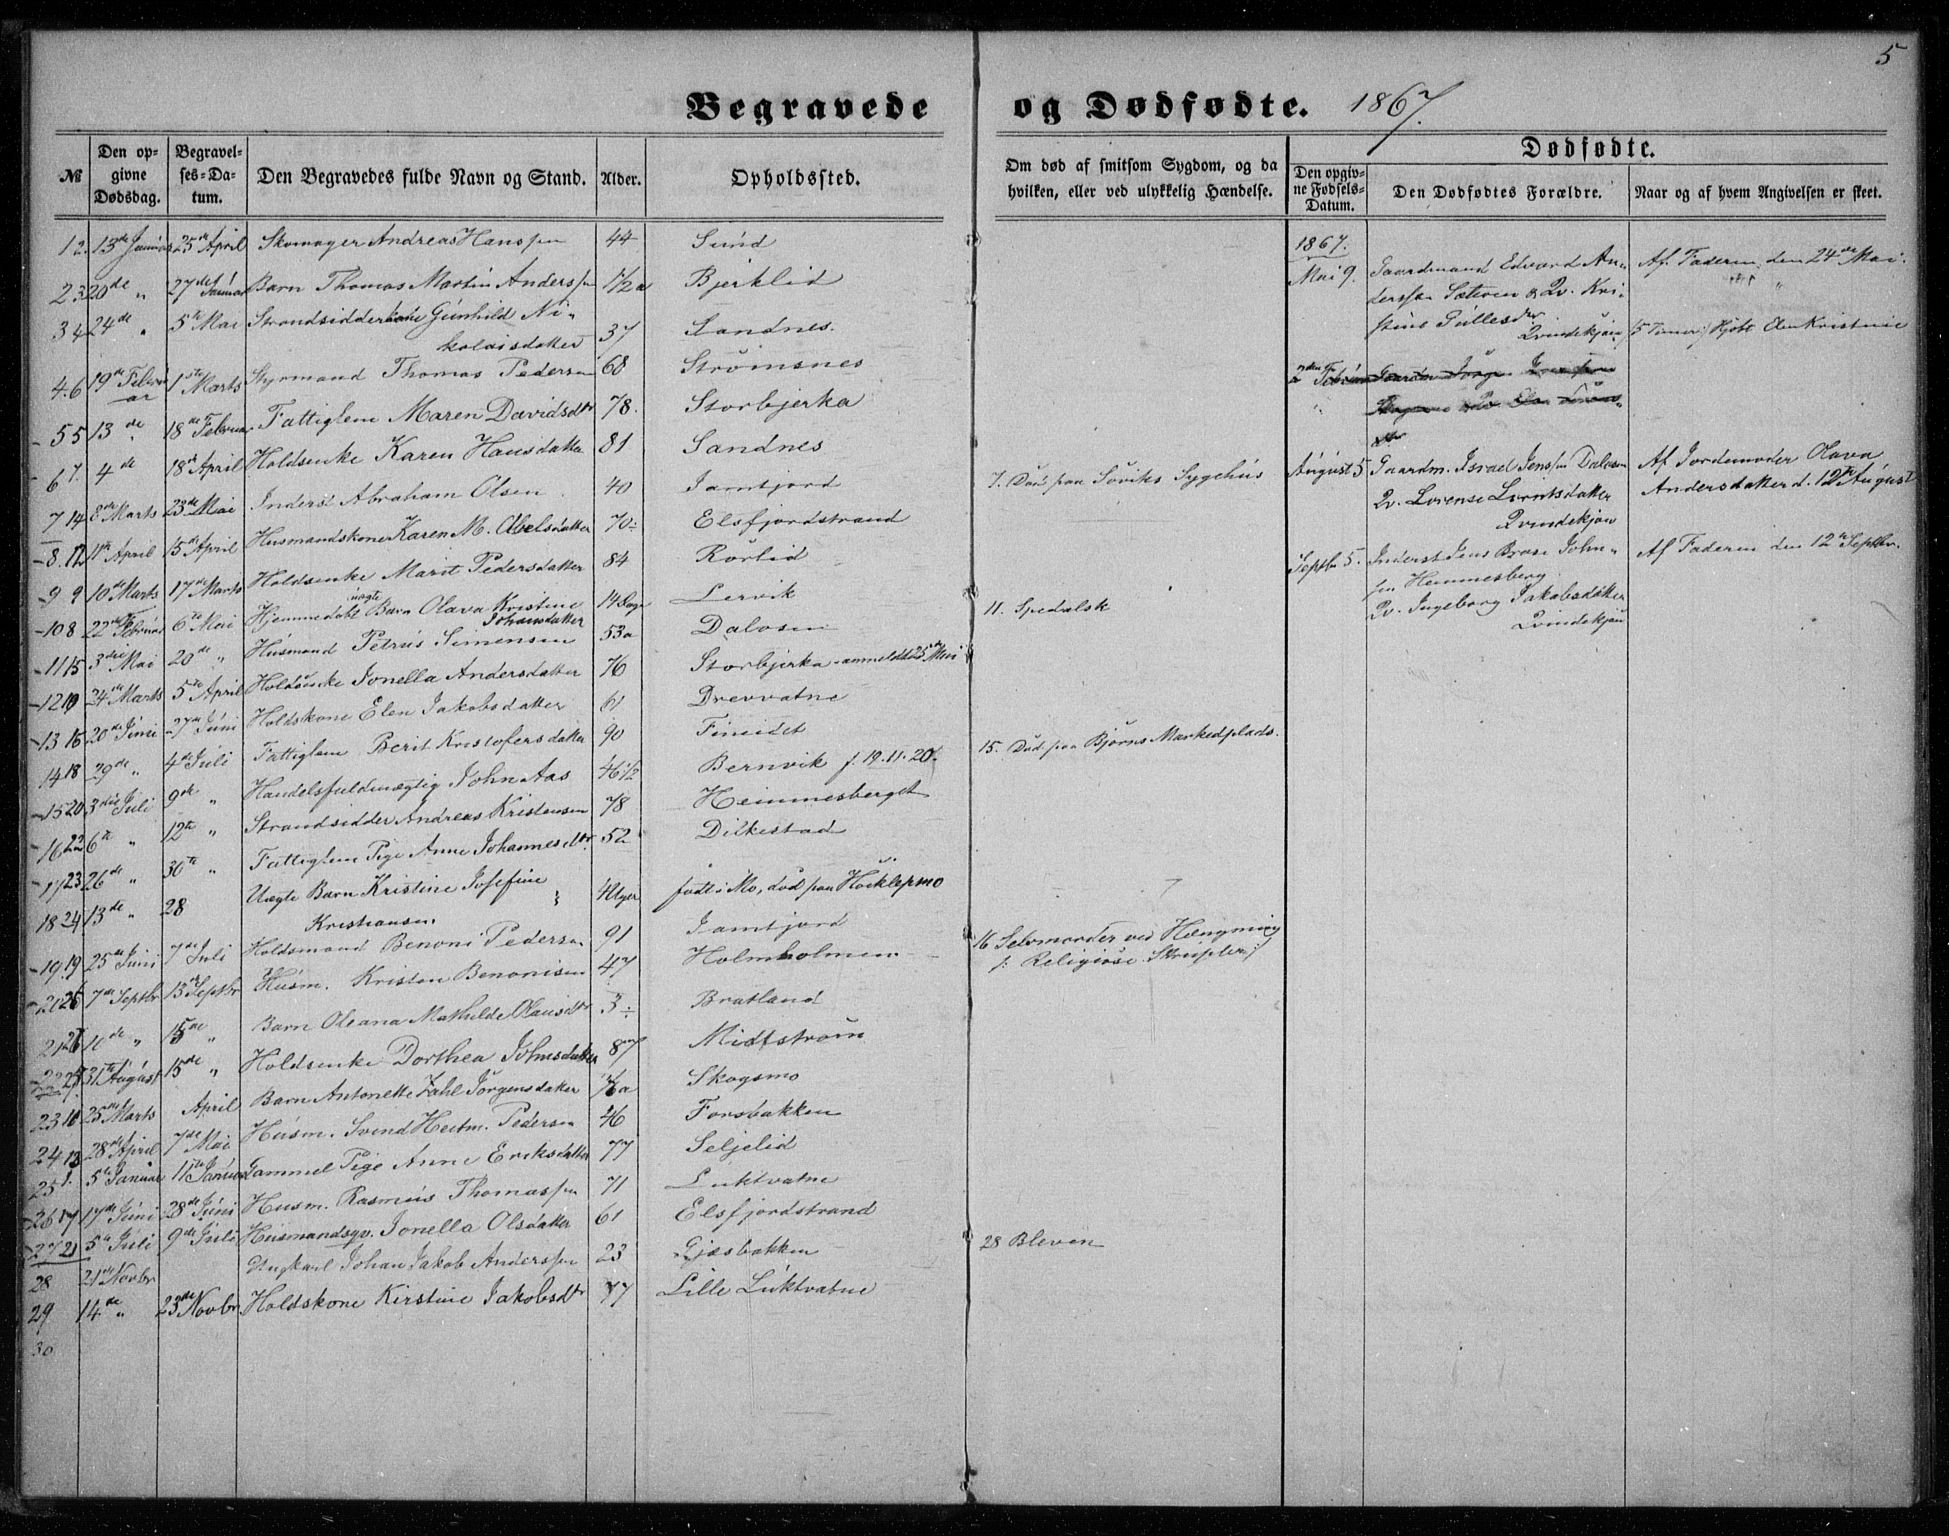 5
Begravede og Dødfødte. 1867.
№ Den opgivne Dødsdag. Begravelses-Datum. Den Begravedes fulde Navn og Stand. Alder. Opholdssted.
Om død af smitsom Sygdom, og da hvilken, eller ved ulykkelig Hændelse.
Dødfødte.
Den opgivne Fødsels-Datum. Den Dødfødtes Forældre. Naar og af hvem Angivelsen er skeet.
1 2. 13de Januar 25de April Skomager Andreas Hanssen 44 Sund
2 3 20de " 27de Januar Barn Thomas Martin Anderssen 1/2 a Bjerklid
3 4 24de " 5te Mai Strandsidderkone Gunhild Ni-
kolaisdatter 37 Sandnes.
4. 6 19de Februar 1ste Marts Styrmand Thomas Pedersen 68 Strømsnes
5 5 13de " 18de Februar Fattiglem Maren Davidsdtr 78. Storbjerka
6 7. 4de 18de April Holdsenke Karen Hansdatter 81 Sandnes
7 14 8de Marts 23de Mai Inderst Abraham Olsen 40 Jamtjord
8. 12 11te April 15de April Husmandskone Karen M. Abelsdatter 70 Elsfjordstrand
9 9 10de Marts 17de Marts Holdsenke Marit Pedersdatter 84 Rørlid
10 8 22de Februar 6te Mai Hjemmedøbt uægte Barn Olava Kristine
Johansdatter 14 Dage Lervik
11 15 3die Mai 20de " Husmand Petrus Simensen 53 a Dalosen
12 10 24de Marts 5te April Holdsenke Jonella Andersdatter 76 Storbjerka anmeldt 25de Mai
13 16 20de Juni 27de Juni Holdskone Elen Jakobsdatter 61 Drevvatne
14 18 29de " 4de Juli Fattiglem Berit Kristofersdatter 90 Fineidet
15 20 3die Juli 9de " Handelsfuldmægtig John Aas 46 1/2 Bernvik f. 19.11.20.
16 22 6te " 12te " Strandsidder Andreas Kristensen 78 Hemmesberget
17 23 26de " 30te " Fattiglem Pige Anne Johannesdtr. 52 Dilkestad
18 24 13de " 28 Uægte Barn Kristine Josefine
Kristiansen 4 Uger født i Mo, død paa
19 19 25de Juni 7de Juli Holdsmand Benoni Pedersen 91 Jamtjord
25 7de Septbr 13de Septbr Husm. Kristen Benonisen 47 Holmholmen
21 26 10de " 15de " Barn Oleana Mathilde Olausdtr 3 Bratland
22 27 31te August 15de " Holdsenke Dorthea Johnsdatter 87 Midtstrøm
23 11 25de Marts April Barn Antonette Zahl Jørgensdatter 1/2 a Skogsmo
24 13 28de April 7de Mai Husm. Svend Heitm. Pedersen 46 Forsbakken
25 1. 5te Januar 11te Januar Gammel Pige Anne Eriksdatter 77 Seljelid
26 17 17de Juni 28de Juni Husm. Rasmus Thomassen 71 Luktvatne
27 21 5te Juli 9de Juli Husmandsgv. Jonella Olsdatter 61 Elsfjordstrand
28 21de Novbr Ungkarl Johan Jakob Anderssen 23 Gjæsbakken
29 14de " 23de Novbr Holdskone Kirstine Jakobsdtr 77 Lille Luktvatne
30
7. Død paa Søviks Sygehus
11. Spedalsk
15. Død paa Bjørns Markedplads.
16 Selvmorder ved Hængning
/: Religiøse Skrupler :/
28 Bleven
1867.
Mai 9. Gaardmand Edvard An- Af Faderen den 24de Mai.
derssen Sæteren & Qv. Kri-
stine Pullesdtr
Qvindekjøn 5 Timer Hjdbt Elen Kristine
2den Februar
August 5 Gaardm. Israel Jenssen Dalosen Af Jordemoder Olava
Qv. Lorense Lorntsdatter Andersdatter d. 12te August
Qvindekjøn
Septbr 5. Inderst Jens Brose John- Af Faderen den 12te Septbr.
sen Hemmesberg
Qv. Ingeborg Jakobsdatter
Qvindekjøn